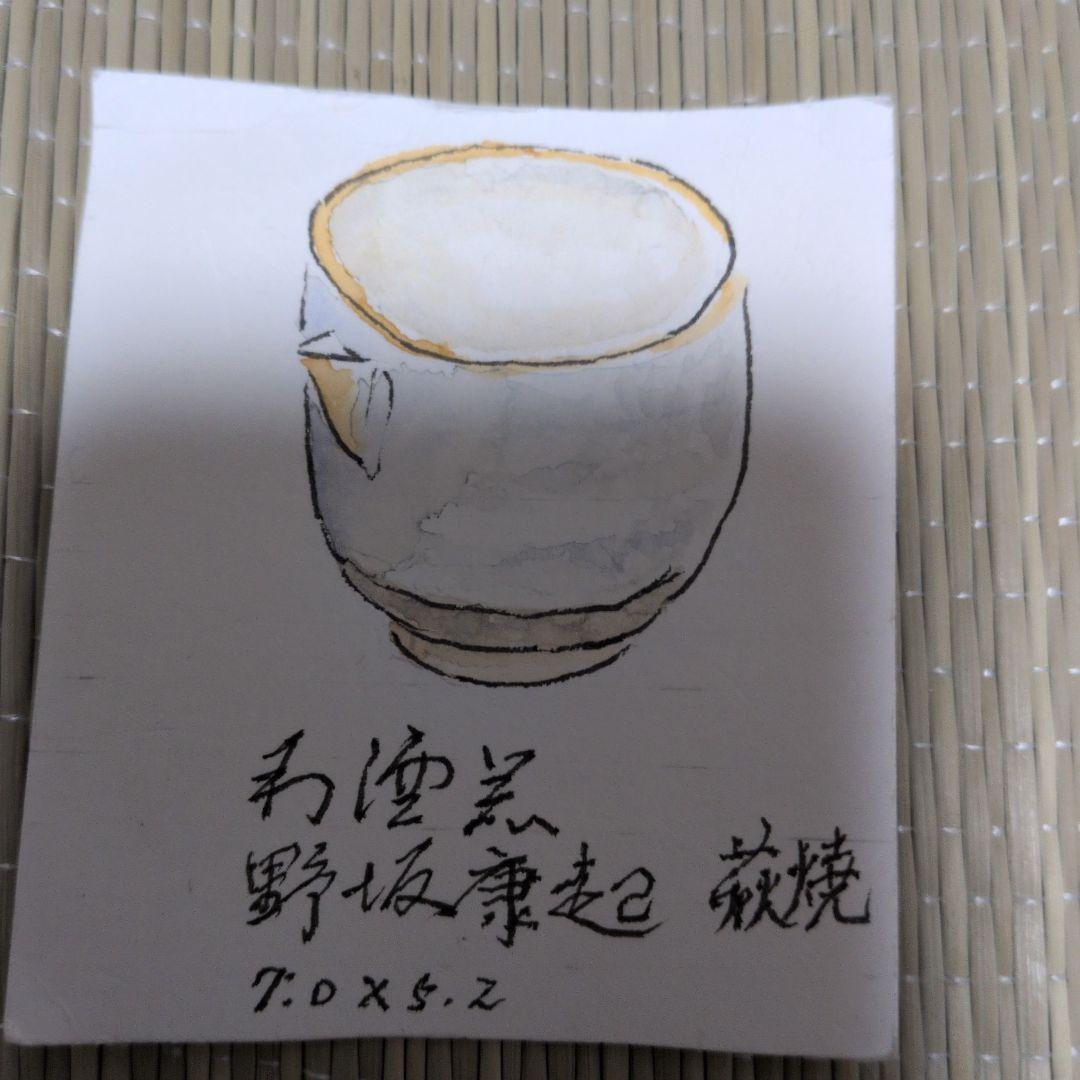 酒器
野坂康起 萩焼
7.0×5.2